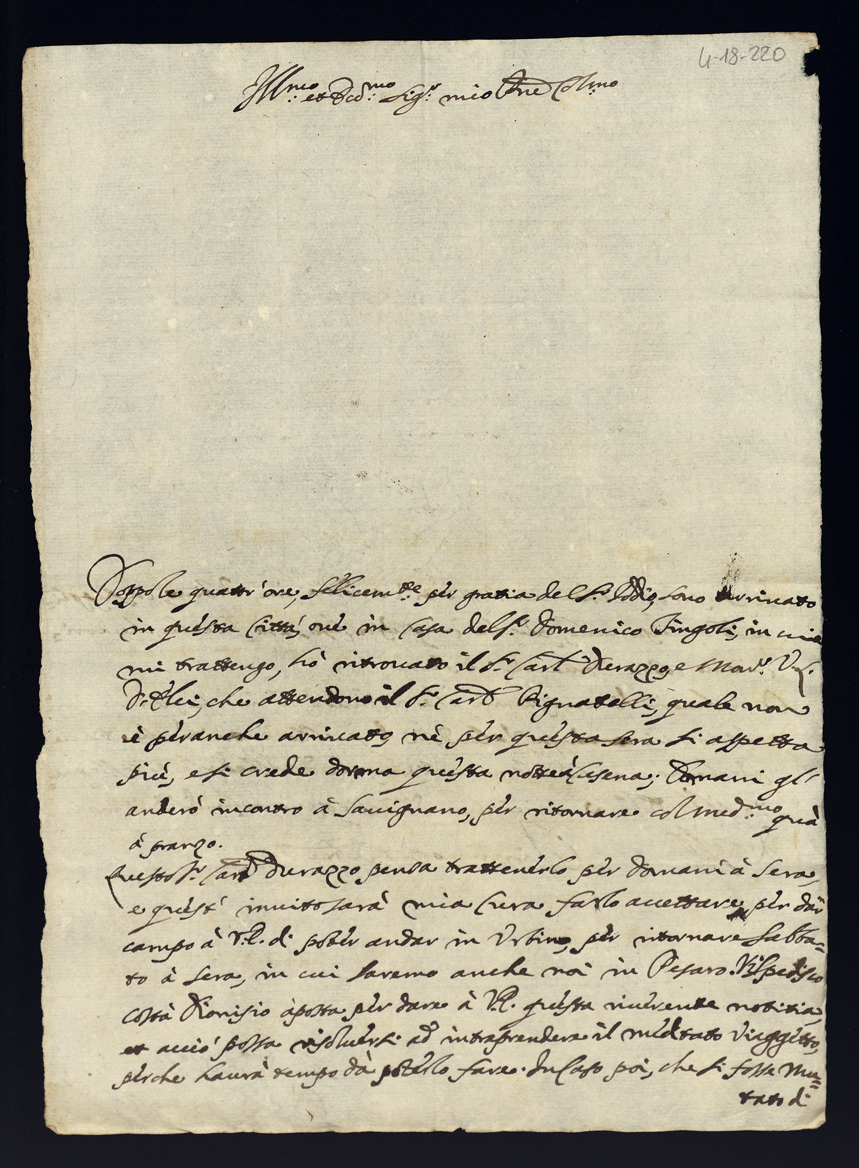 4-18-220
Ill:mo et Rev:mo Sig:r mio P̃ne Col:mo
Doppo le quattr'ore, felicem:te per gratia del S:r Iddio, sono arrivato
in questa Città, ove in Casa del S:r Domenico Tingoli, in cui
mi trattengo, hò ritrovato il S:r Card Durazzo, e Mon:r
D'Elci, che attendono il S:r Card Pignatelli, quale non
è peranche arrivato, nè per questa sera si aspetta
più, e si crede dorma questa notte à Cesena; Domani gl'
anderò incontro à Savignano, per ritornare col med:mo quà
à pranzo.
Questo S:r Card Durazzo pensa trattenerlo per domani à sera,
e quest' invito sarà mia Cura farlo accettare, per dar
campo à V.E. di poter andar in Urbino, per ritornare Sabba=
to à sera, in cui saremo anche noi in Pesaro. Vi spedisco
costà Dionisio àposta per dare à V.E. questa riverente notitia,
et acciò possa risolversi ad intraprendere il meditato viaggetto,
perche haurà tempo dà poterlo fare. In Caso poi, che si fosse mu=
tato di